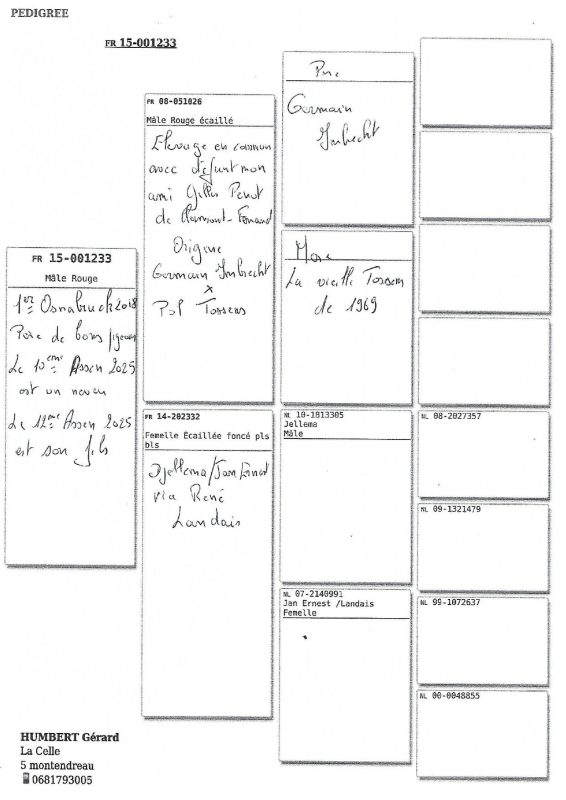 PEDIGREE
FR 15-001233
FR 15-001233
Mâle Rouge
1er Osnabruck 2018
Père de bons pigeons
Le 10ème Assen 2025
est un neveu
Le 12ème Assen 2025
est son fils
FR 08-051026
Mâle Rouge écaillé
Elevage en commun
avec défunt mon
ami Gilles Penot
de Clermont-Ferrand
Origine
Germain Imbrecht
x
Pol Tossens
FR 14-202332
Femelle Écaillée foncé pls
bls
Djellema/Jan Ernest
via René
Landais
Père
Germain
Imbrecht
Mère
La vieille Tossens
de 1969
NL 10-1813305
Jellema
Mâle
NL 07-2140991
Jan Ernest /Landais
Femelle
NL 08-2027357
NL 09-1321479
NL 99-1072637
NL 00-0048855
HUMBERT Gérard
La Celle
5 montendreau
0681793005